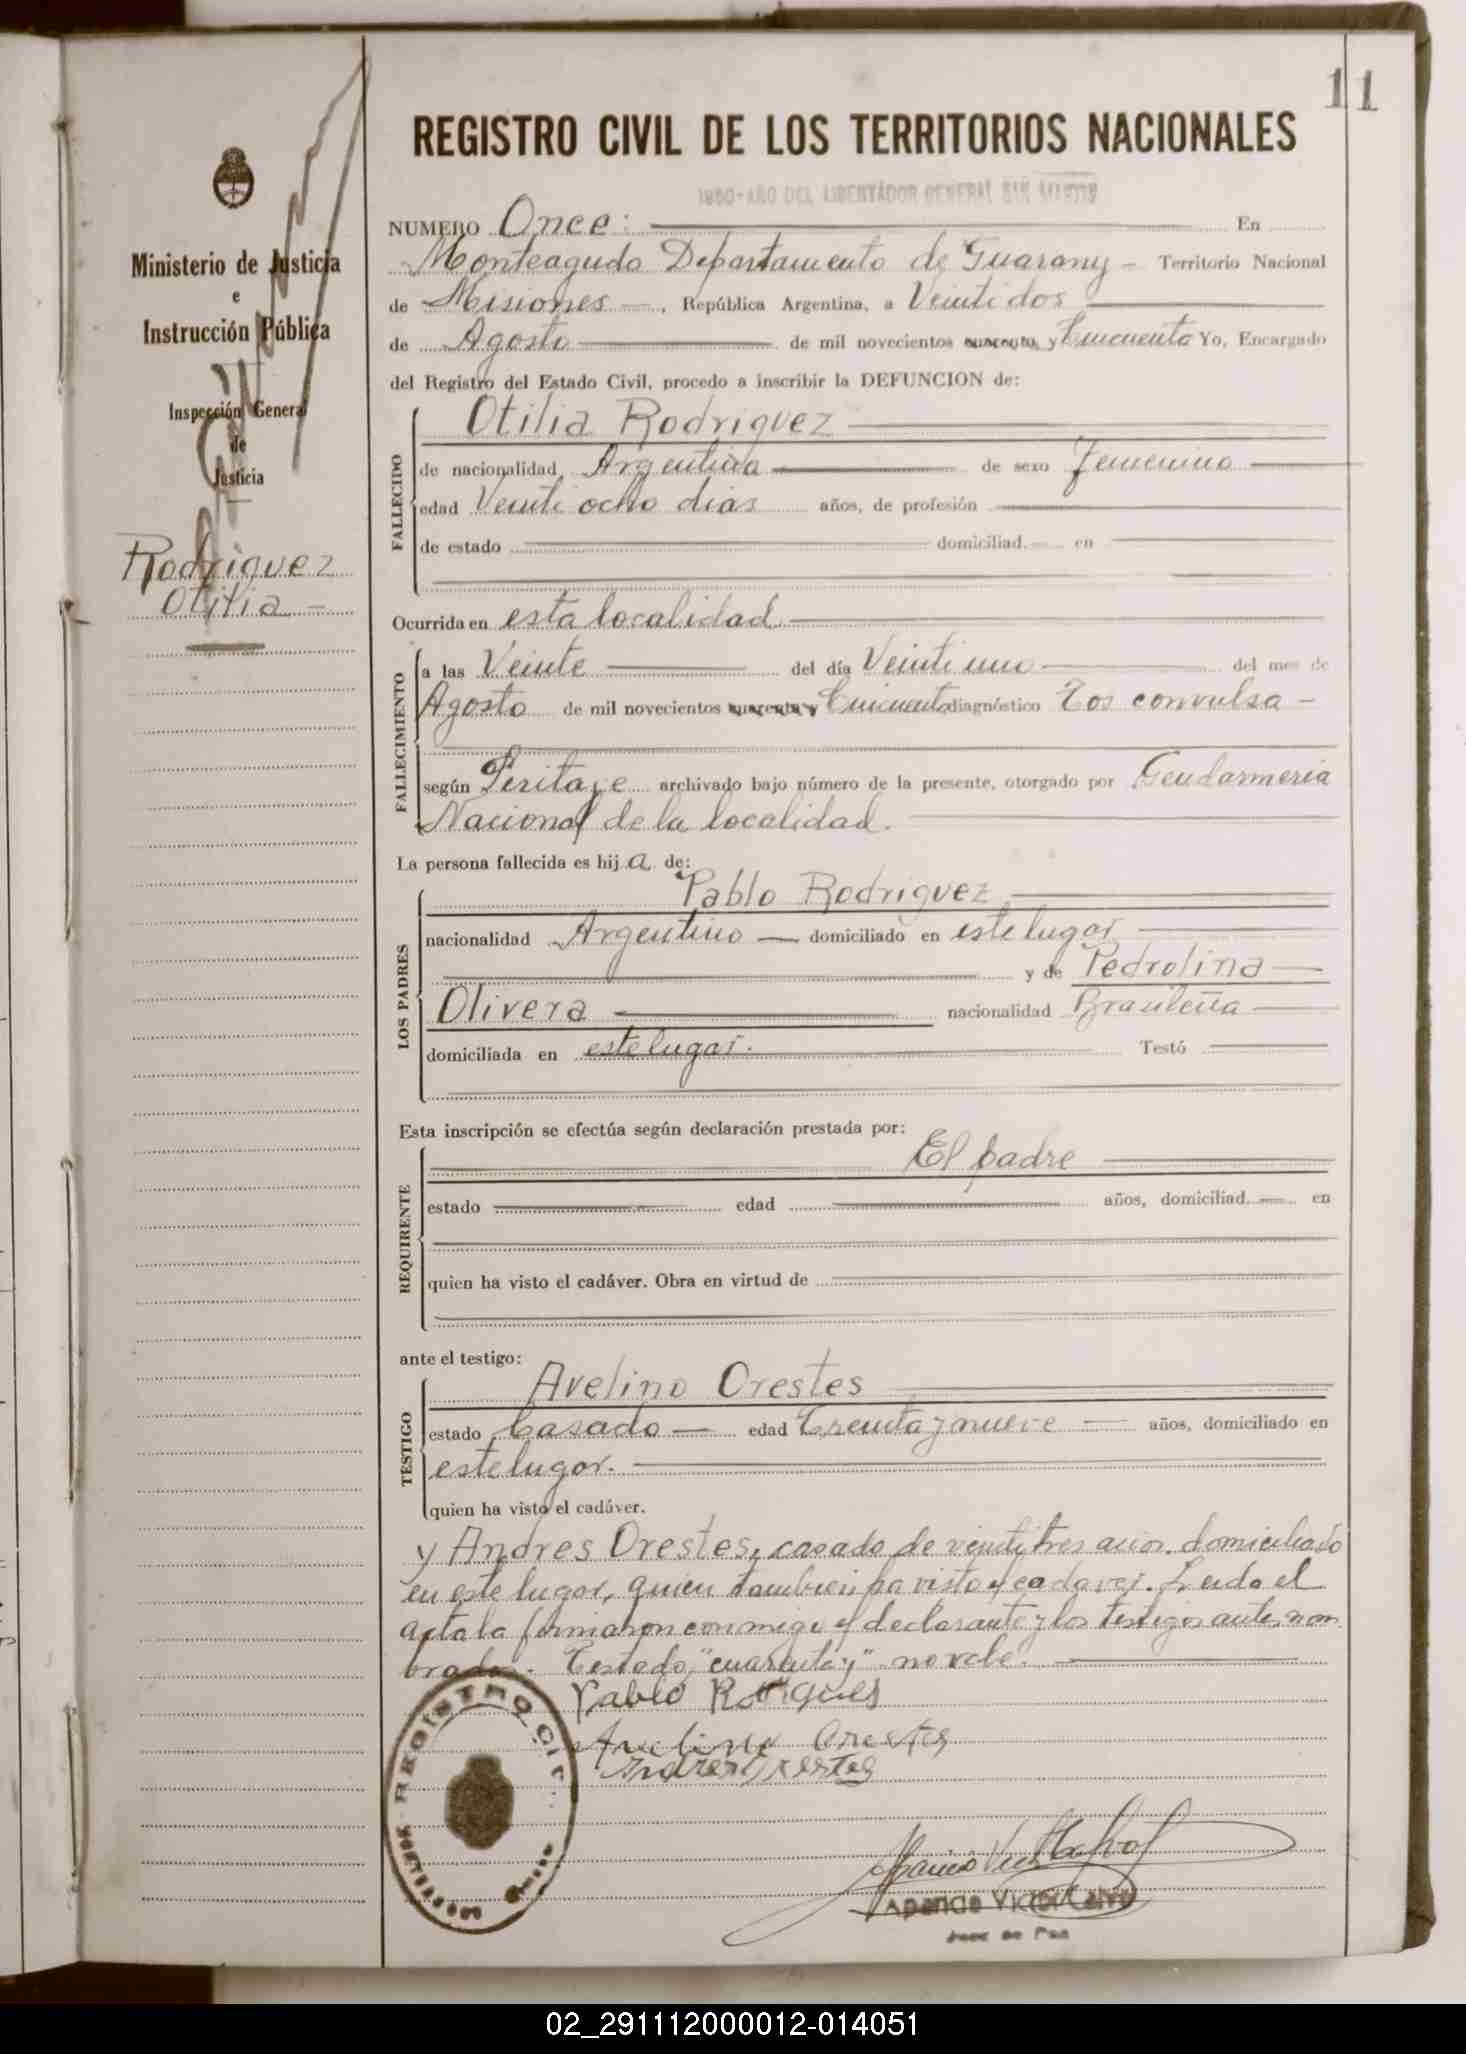 11
REGISTRO CIVIL DE LOS TERRITORIOS NACIONALES
1950-AÑO DEL LIBERTADOR GENERAL SAN MARTIN
Ministerio de Justicia
e
Instrucción Pública
Inspección General
de
Justicia
Rodriguez
Otilia -
NUMERO Once: En
Monteagudo Departamento de Guarany - Territorio Nacional
de Misiones, República Argentina, a Veintidos
de Agosto de mil novecientos cuarenta y Cincuenta Yo, Encargado
del Registro del Estado Civil, procedo a inscribir la DEFUNCION de:
FALLECIDO
Otilia Rodriguez
de nacionalidad Argentina de sexo Femenino
edad Veinti ocho dias años, de profesión
de estado domiciliad en
Ocurrida en esta localidad
FALLECIMIENTO
a las Veinte del día Veintiuno del mes de
Agosto de mil novecientos cuarenta y Cincuenta diagnóstico Tos convulsa -
según Peritaje archivado bajo número de la presente, otorgado por Gendarmeria
Nacional de la localidad.
La persona fallecida es hija de:
LOS PADRES
Pablo Rodriguez
nacionalidad Argentino domiciliado en este lugar
y de Pedrolina
Olivera nacionalidad Brasileña
domiciliada en este lugar. Testó
Esta inscripción se efectúa según declaración prestada por:
REQUIRENTE
El padre
estado edad años, domiciliad en
quien ha visto el cadáver. Obra en virtud de
ante el testigo:
TESTIGO
Avelino Orestes
estado Casado edad Treinta y nueve años, domiciliado en
este lugar.
quien ha visto el cadáver.
y Andres Orestes, casado de veintitres años, domiciliado
en este lugar, quien tambien ha visto el cadaver. Leida el
acta la firmaron conmigo el declarante y los testigos antes nom
brados. Testado "cuarenta y" no vale.
Pablo Rodrigues
Avelino Orestes
Andres Orestes
REGISTRO CIVIL
Aparicio Victor Calvo
Juez de Paz
02_291112000012-014051